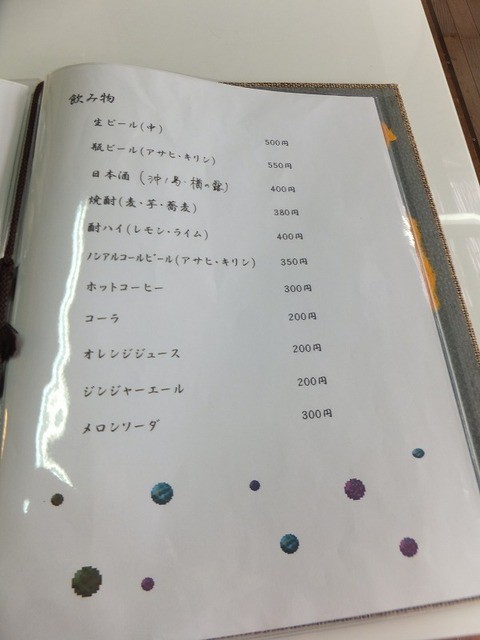 飲み物
生ビール(中) 500円
瓶ビール(アサヒ・キリン) 550円
日本酒(沖ノ島・楢の露) 400円
焼酎(麦・芋・蕎麦) 380円
酎ハイ(レモン・ライム) 400円
ノンアルコールビール(アサヒ・キリン) 350円
ホットコーヒー 300円
コーラ 200円
オレンジジュース 200円
ジンジャーエール 200円
メロンソーダ 300円